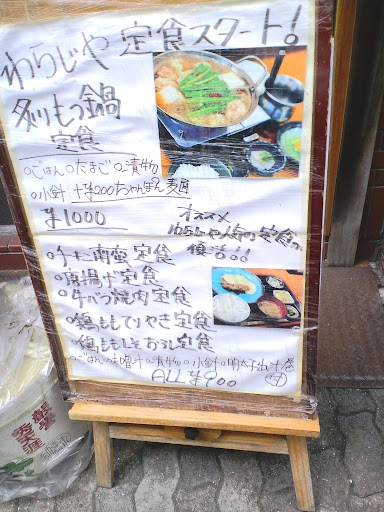 わらじや 定食スタート!
炙りもつ鍋
定食
○ごはん○たまご○漬物
○小鉢 +¥200ちゃんぽん麺
¥1000
オススメ
わらじや人気の定食
復活。。
○チキン南蛮定食
○唐揚げ定食
○牛バラ焼肉定食
○鶏ももてりやき定食
○鶏ももしそおろし定食
○ごはん○味噌汁○漬物○小鉢○明太だし巻
ALL ¥900